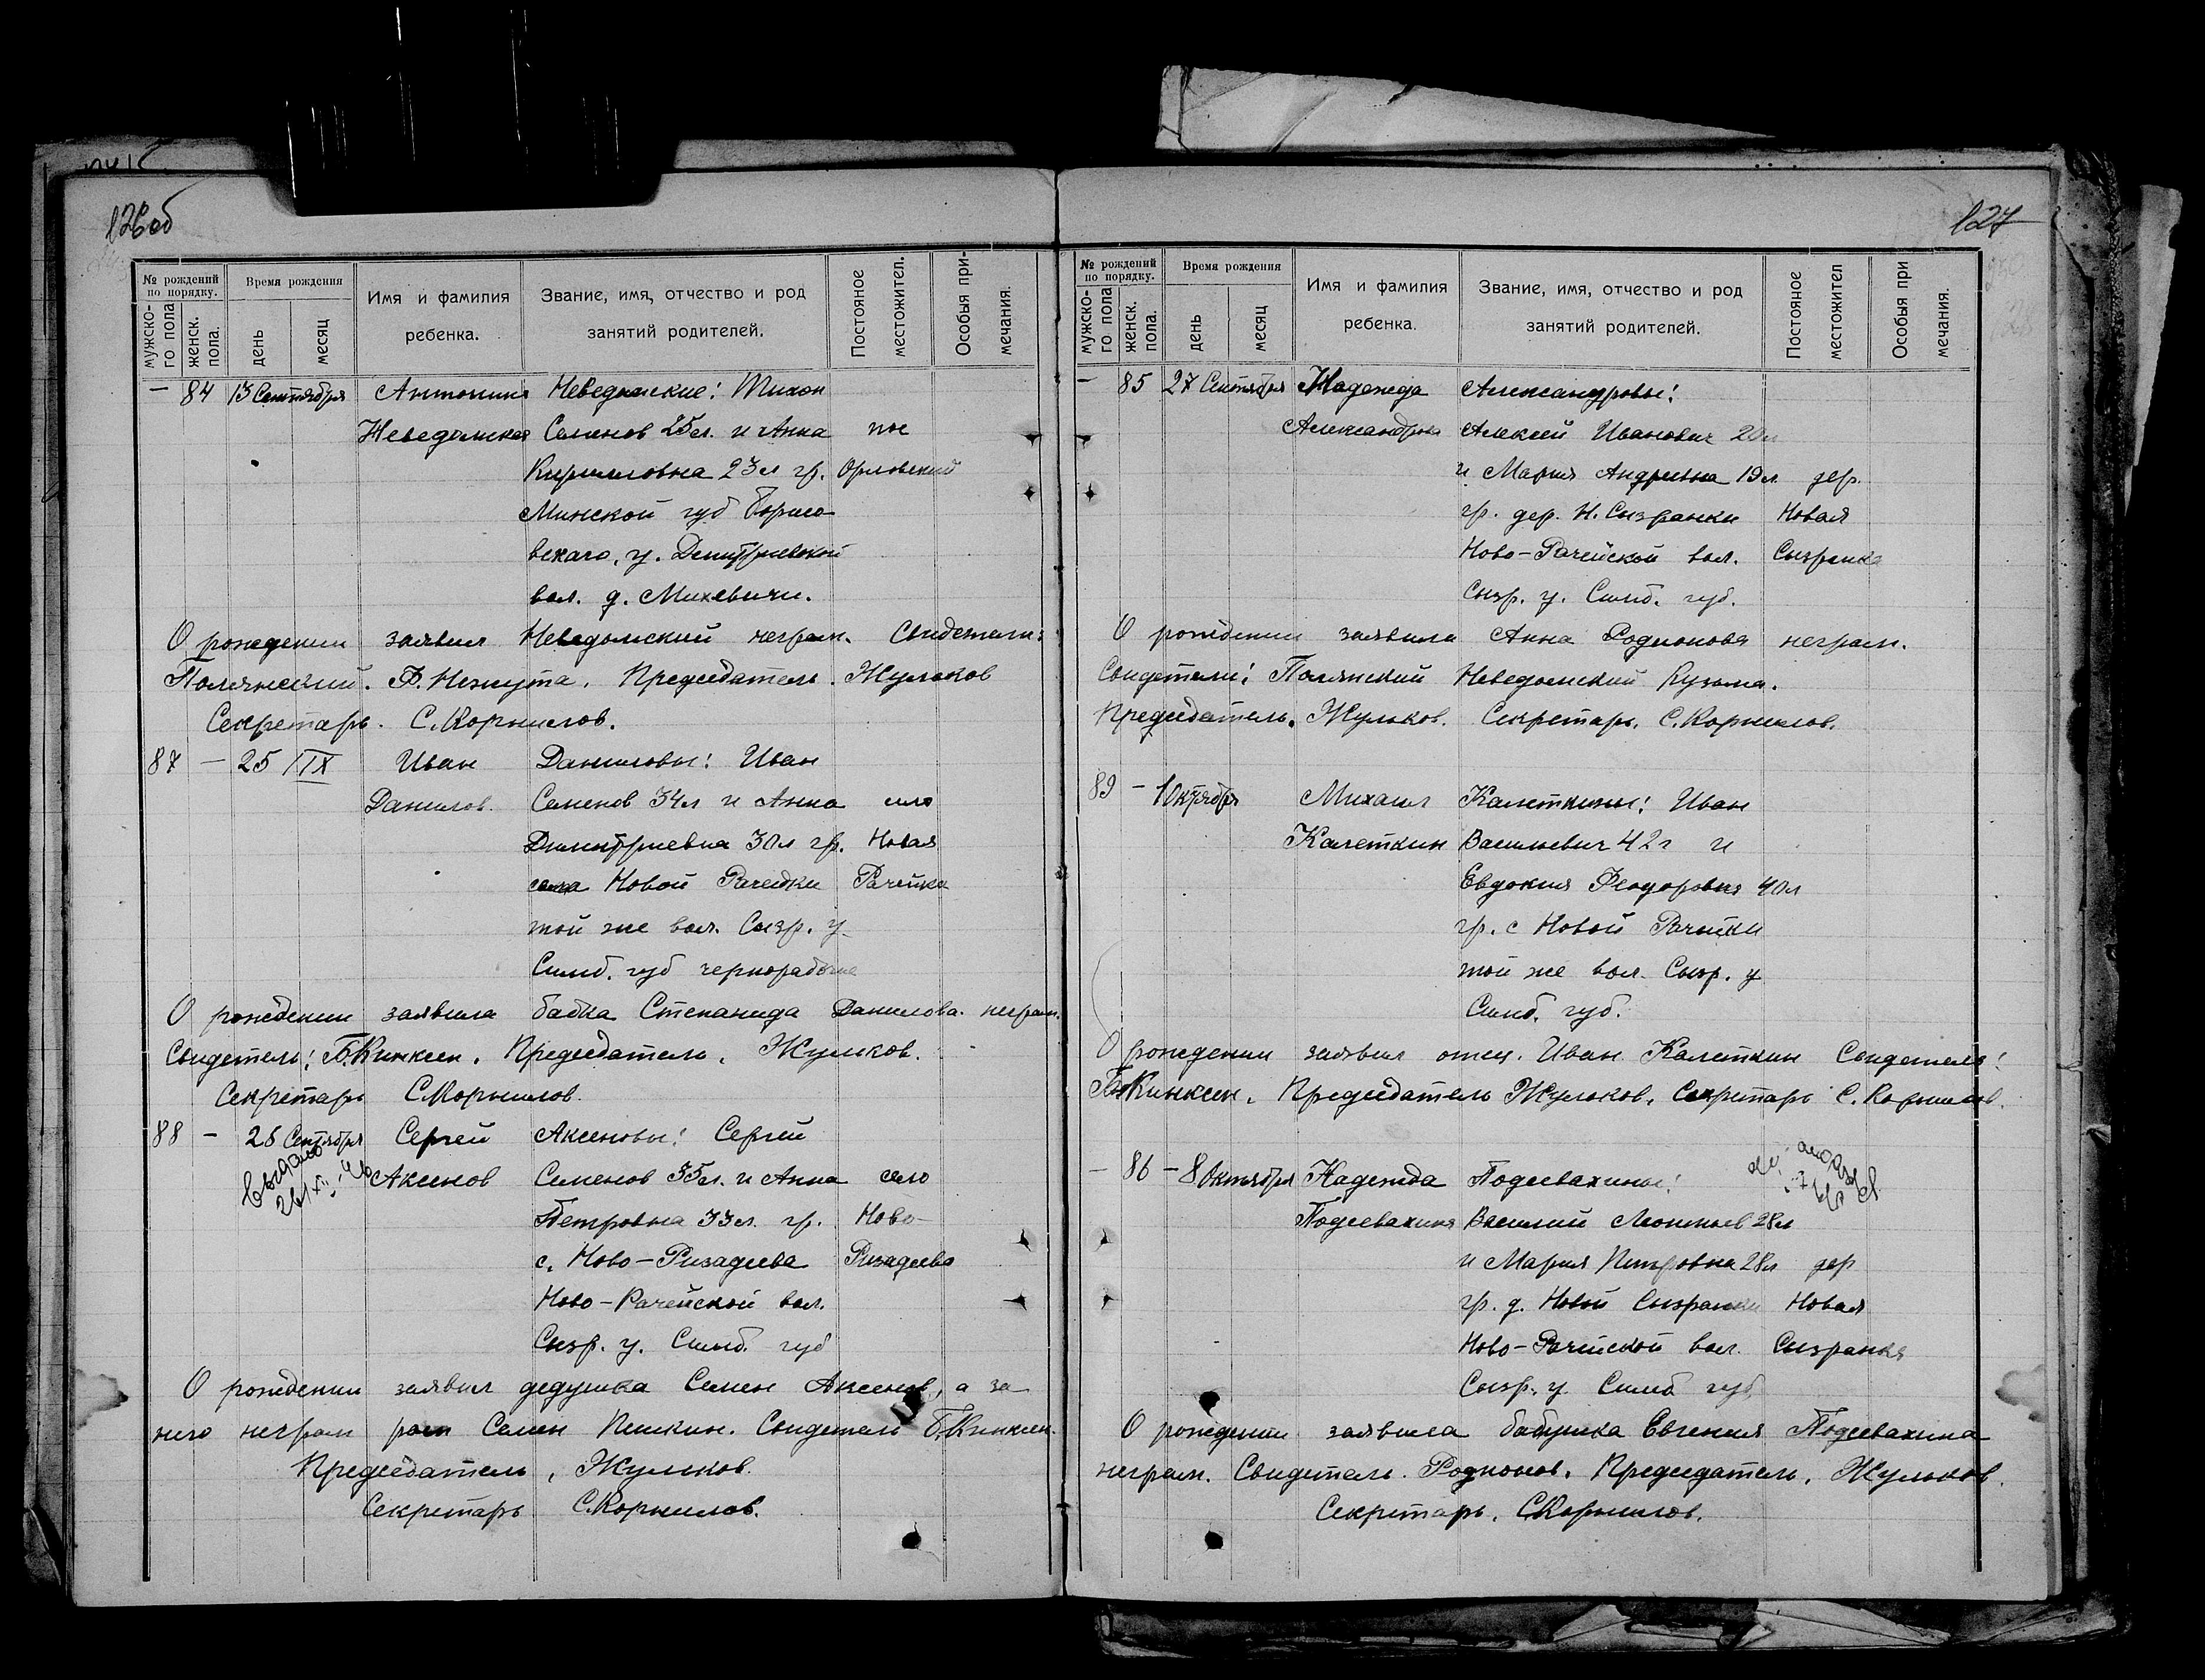 126об
№ рождений по порядку.
мужско-го пола
женск. пола.
Время рождения
день
месяц
Имя и фамилия ребенка.
Звание, имя, отчество и род занятий родителей.
Постояное местожител.
Особыя при-мечания.
— 84 13 Сентября Антонина Неведомские: Тихон
Неведомская Семенов 25 л. и Анна пос
Кирилловна 23 л гр. Орловский
Минской губ Борисо-
вскаго, у. Дмитриевской
вол. д. Михевичи.
О рождении заявил Неведомский неграм. Свидетели:
Полянский. Ф. Нехута. Председатель. Жульков
Секретарь. С. Корнилов.
87 — 25 IX Иван Даниловы: Иван
Данилов. Семенов 34 л и Анна село
Димитриевна 30 л гр. Новая
села Новой Рачейки Рачейка
той же вол. Сызр. у.
Симб. губ чернорабочие
О рождении заявила бабка Степанида Данилова. неграм.
Свидетель: Б. Кинксен. Председатель. Жульков.
Секретарь С. Корнилов.
88 — 26 Сентября Сергей Аксеновы: Сергей
Аксенов Семенов 35 л. и Анна село
Петровна 33 л. гр. Ново-
с. Ново-Ризадеева Ризадеево
Ново-Рачейской вол.
Сызр. у. Симб. губ
О рождении заявил дедушка Семен Аксенов, а за
него неграм расп Семен Пешкин. Свидетель Б. Кинксен.
Председатель, Жульков.
Секретарь С. Корнилов.
127
№ рождений по порядку.
мужско-го пола
женск. пола.
Время рождения
день
месяц
Имя и фамилия ребенка.
Звание, имя, отчество и род занятий родителей.
Постояное местожител
Особыя при мечания.
— 85 27 Сентября Надежда Александровы:
Александрова Алексей Иванович 20 л
и Мария Андреевна 19 л. дер.
гр. дер. Н. Сызранки Новая
Ново-Рачейской вол. Сызранка
Сызр. у. Симб. губ.
О рождении заявила Анна Родионова неграм.
Свидетели: Полянский Неведомский Кузьма.
Председатель. Жульков. Секретарь. С. Корнилов.
89 — 1 Октября Михаил Калеткины: Иван
Калеткин Васильевич 42 г и
Евдокия Феодоровна 40 л
гр. с Новой Рачейки
той же вол. Сызр. у
Симб. губ.
О рождении заявил отец. Иван Калеткин Свидетель:
Б. Кинксен. Председатель Жульков. Секретарь С. Корнилов.
— 86 — 8 Октября Надежда Подсевахины:
Подсевахина Василий Леонтьев 28 л
и Мария Петровна 28 л дер
гр. д. Новой Сызранки Новая
Ново-Рачейской вол. Сызранка
Сызр. у. Симб губ
О рождении заявила бабушка Евгения Подсевахина
неграм. Свидетель. Родионов. Председатель. Жульков.
Секретарь. С. Корнилов.